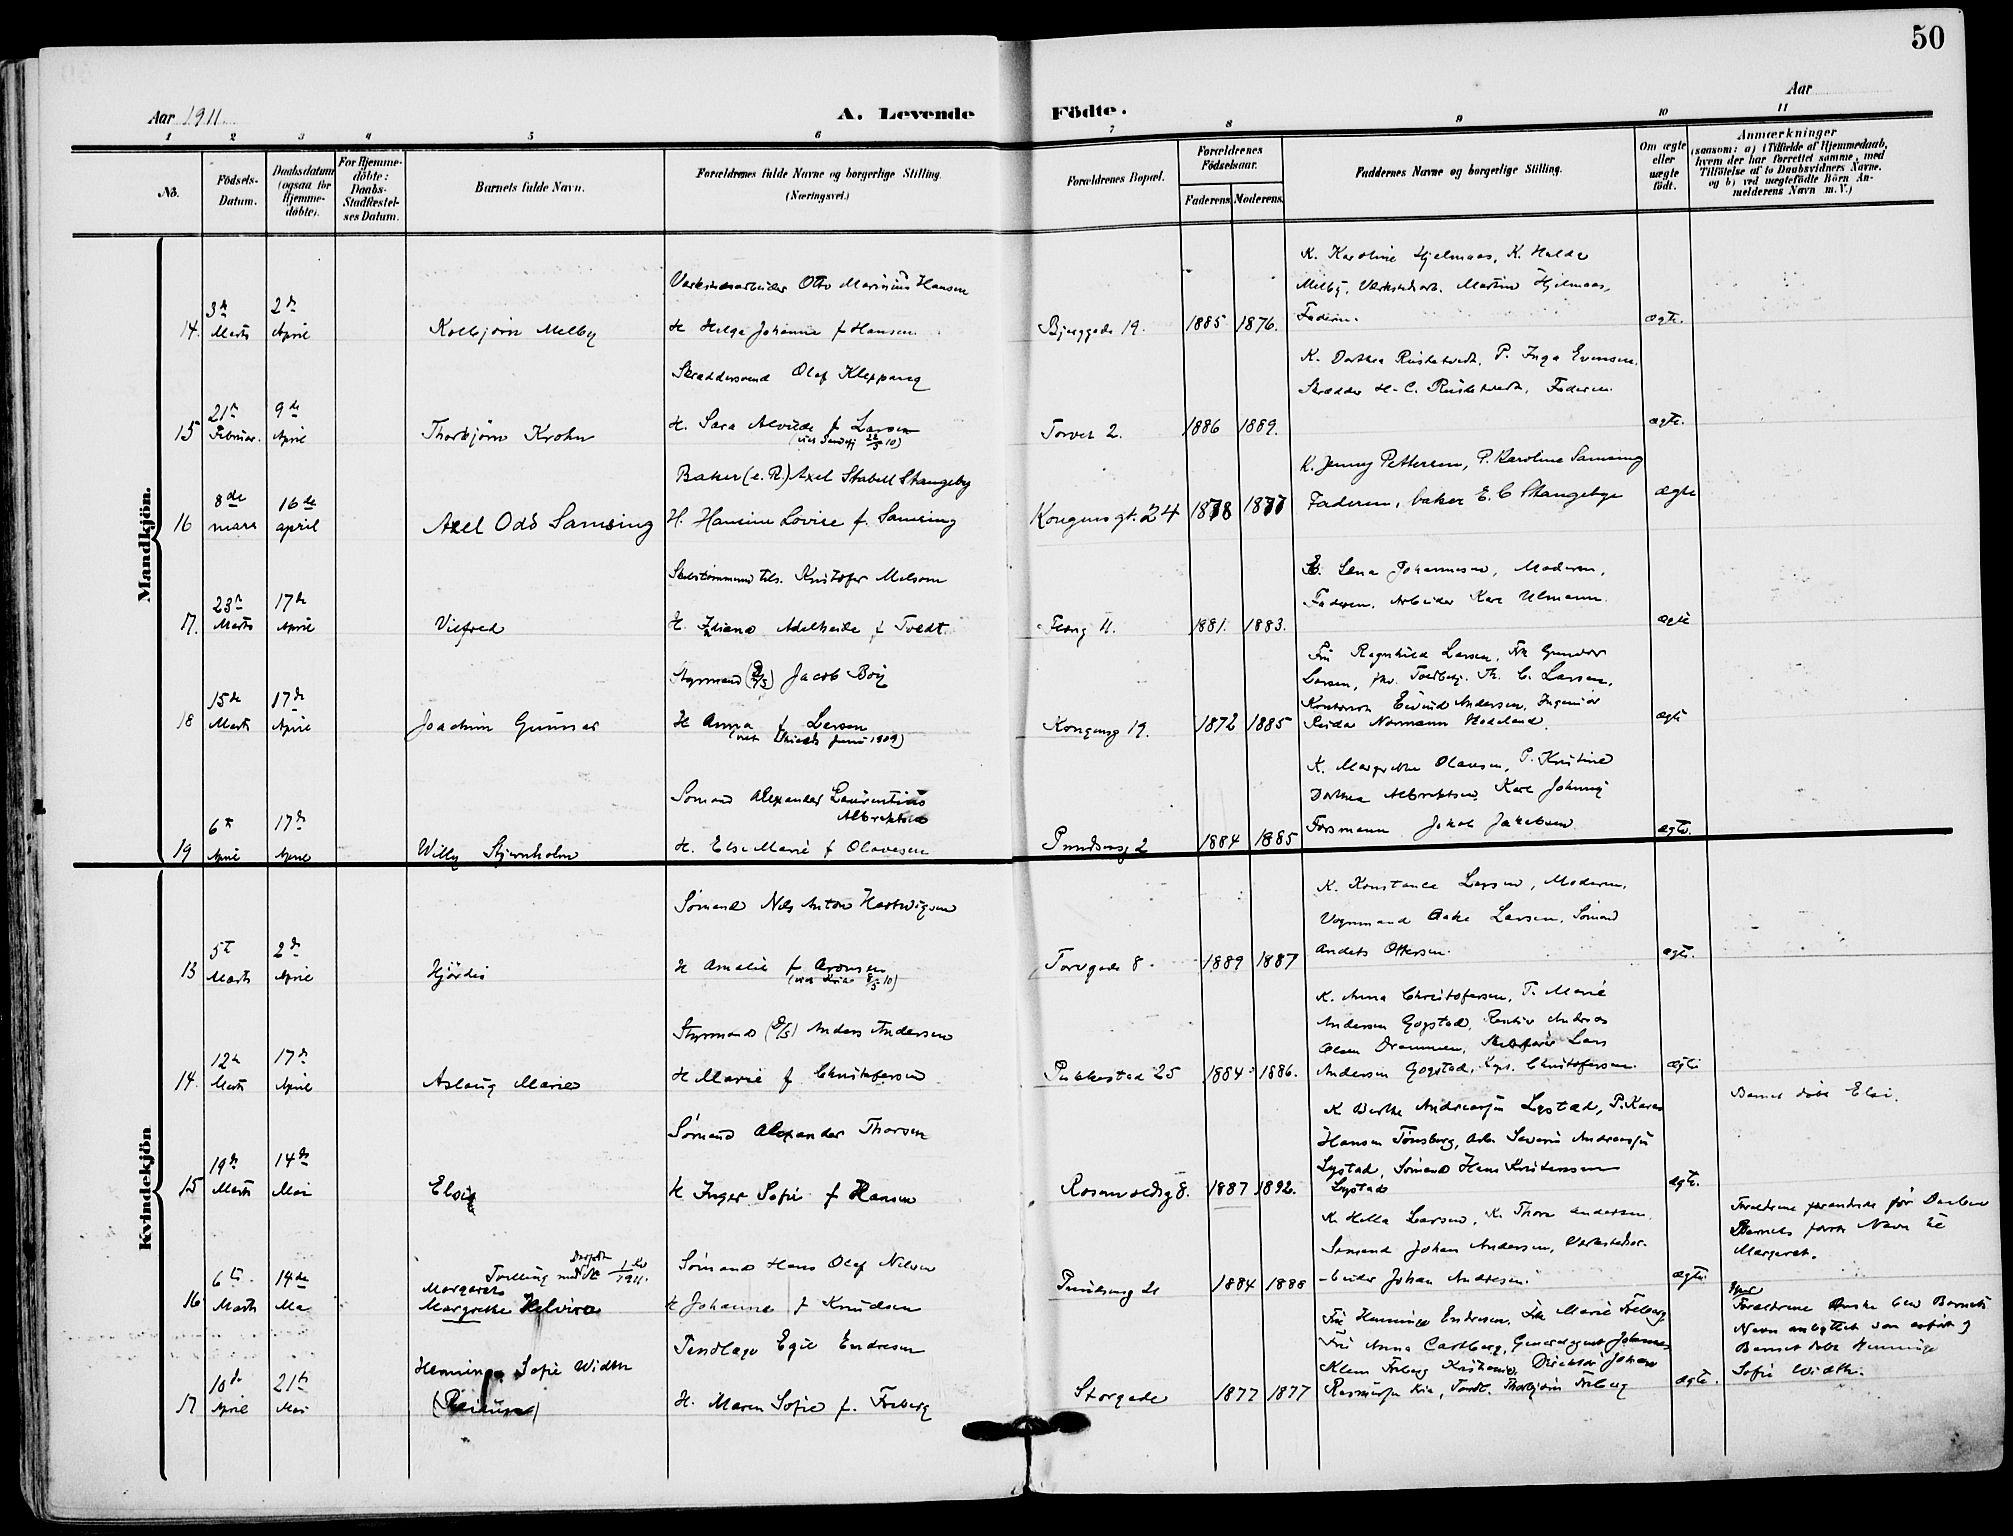 50
Aar 1911.
A. Levende Födte.
Aar
1 2 3 4 5 6 7 8 9 10 11
No.
Födsels-Datum.
Daabsdatum (ogsaa for Hjemme-döbte).
For Hjemme-döbte: Daabs-Stadfæstel-ses Datum.
Barnets fulde Navn.
Forældrenes fulde Navne og borgerlige Stilling.
(Næringsvei.)
Forældrenes Bopæl.
Forældrenes Födselsaar.
Faderens. Moderens.
Faddernes Navne og borgerlige Stilling.
Om ægte eller uægte født.
Anmærkninger
(saasom: a) i Tilfælde af Hjemmedaab,
hvem der har forrettet samme, med
Tilföielse af to Daabsvidners Navne,
og b) ved uægtefödte Börn An-
melderens Navn m. V.)
Mandkjön.
14. 3de Marts 2den April
Kolbjørn Melby
Værkstedsarbeider Otto Marinius Hansen
H. Helga Johanne f Hansen
Bjerggade 19. 1885 1876.
K. Karoline Hjelmaas, K. Hulda
Melby, Værkstedarb. Martin Hjelmaas,
Faderen.
ægte.
15 21de Februar. 9de April
Thorbjørn Krohn
Skræddersvend Olaf Kleppang
H. Sara Alvilde f Larsen
Torvet 2. 1886 1889.
K. Dorthea Rustetvedt, P. Inga Evensen.
Skrædder H. C. Rustetvedt, Faderen.
ægte.
16 8de mars 16de april
Axel Odd Samsing
Baker (e. R.) Axel Stabell Stangeby
H. Hansine Lovise f. Samsing
Kongensgt. 24 1878 1877
K. Jenny Pettersen, P. Karoline Samsing
Faderen, baker E. C Stangebye
ægte
17. 23de Marts 17de April
Vilfred
Kristofer Melsom
H. Adelheide f Tvedt.
11. 1881. 1883.
Lena Johannesen, Moderen,
Faderen, Arbeider Karl Ulmann.
ægte
18 15de Marts 17de April
Joachim Gunnar
Styrmand (D/S) Jacob Bøy
H Anna f Larsen
Kongensg 19. 1872 1885
Fru Ragnhild Larsen, Frk Gunvor
Larsen, Th. C. Larsen,
Kontorist Eivind Andersen, Ingeniør
Reidar Normann Hodeland.
ægte
19 6te April 17de April
Willy Stjernholm
Sømand Alexander Laurentius
Albrektsen
H. Else Marie f Olavesen
Prindsensg 2 1884 1885
K. Margrethe Olausen, P. Kristine
Dorthea Albrektsen, Karl Johnny
Forsmann Jakob Jakobsen.
ægte.
Kvindekjön
13 5te Marts 2den April
Hjørdis
Sømand Nils Anton Hartvigsen
H Amalie f Aronsen
Torvgade 8. 1889 1887
K. Konstance Larsen, Moderen.
Vognmand Aake Larsen, Sømand
Anders Ottersen.
ægte.
14. 12te Marts 17de April
Aslaug Marie
Styrmand (D/S) Anders Andersen
H Marie f Christofersen
Pukkestad 25 1884 1886.
K. Anna Christofersen, P. Marie
Andersen Gogstad, Rentier Andreas
Olsen Drammen, Skibsfører Lars
Andersen Gogstad, Kapt. Christofersen.
ægte
15 19de Marts 14de Mai
Elsie
Sømand Alexander Thorsen
H Inger Sofie f Hansen
Rosenvoldsg 8. 1887 1892.
K Berthe Andreasen Lystad, P. Karen
Hansen Tønsberg, Arb. Severin Andreassen
Lystad, Sømand Hans Kristensen
Lystad
ægte.
Barnet døbt Elsi.
16 6te Marts 14de Mai
Tvilling
1911.
Margareth
Margrethe Helvira
Sømand Hans Olaf Nilsen
H Johanne f Knudsen
Prindsensg 21 1884 1888
K. Helle Larsen, K. Thora Andersen,
Sømand Johan Andersen, Værkstedsar-
beider Johan Andresen.
ægte.
Forældrene forandrede før Daaben
Barnets første Navn til
Margaret.
17 10de April 21de Mai
Henninge Sofie Width
Tandlæge Egil Endresen
H. Maren Sofie f. Freberg
Storgade 1877 1877
Fru Henninge Endresen, Frk Marie Freberg,
Fru Anna Carlberg, Generalagent Johannes
Klem Freberg Kristiania, Direktør Johan
Rasmussen Kra, Tandl. Thorbjørn Freberg
ægte.
Forældrene ønske ved Barnets
Navn ombyttet som anført og
Barnet døbt Henninge
Sofie Width.